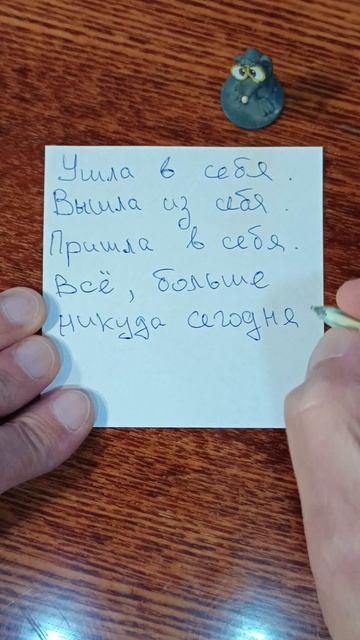 Ушла в себя.
Вышла из себя.
Пришла в себя.
Всё, больше
никуда сегодня